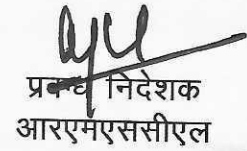 प्रबन्ध निदेशक
आरएमएससीएल